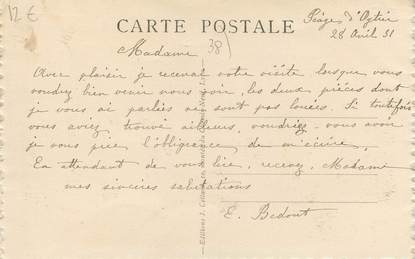 12 €
CARTE POSTALE
Péage d'Oytier
28 Avril 31
38)
Madame
Avec plaisir je recevrai votre visite lorsque vous
voudrez bien venir nous voir, les deux pièces dont
je vous ai parlées ne sont pas louées. Si toutefois
vous aviez trouvé ailleurs, voudriez-vous avoir
je vous prie l'obligeance de m'écrire.
En attendant de vous lire, recevez, Madame
mes sincères salutations
E. Bedout
Editions J. Cellard